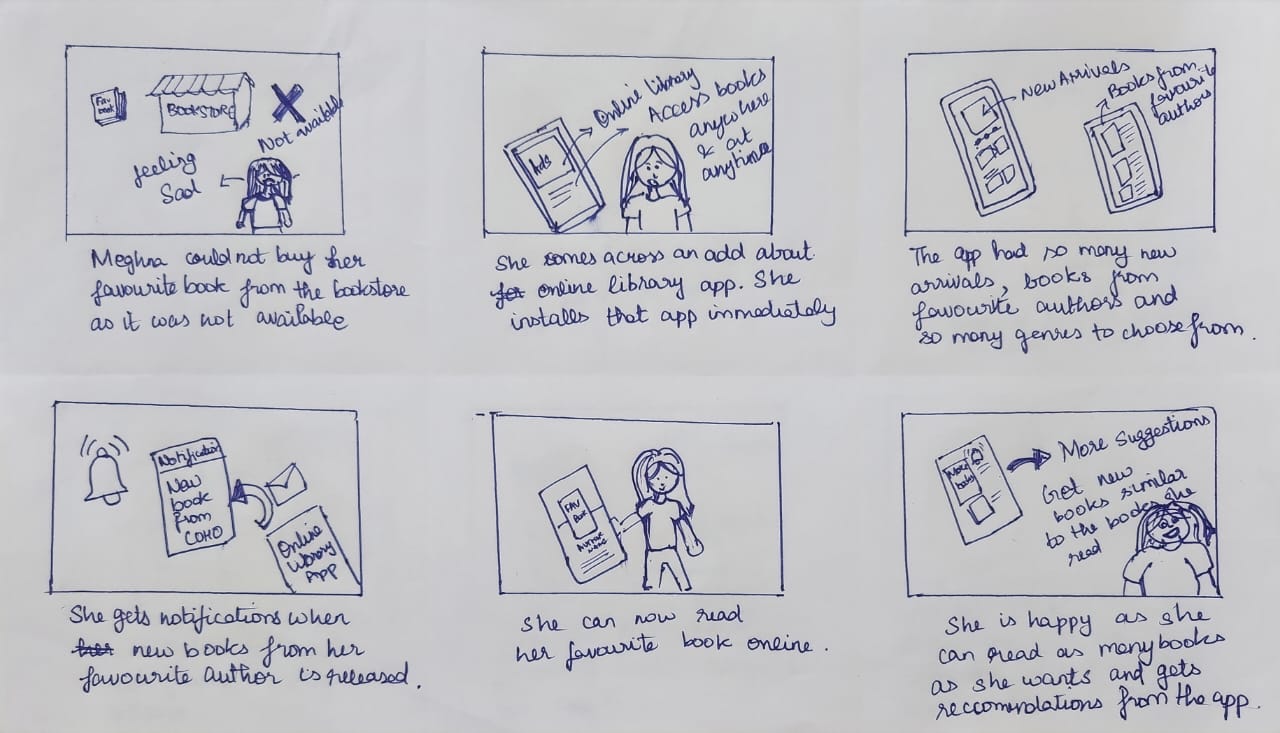 Fav
book
BOOKSTORE
Not availble
feeling
Sad
Meghna could not buy her
favourite book from the bookstore
as it was not available
Ads
Online library
Access books
anywhere
& at
anytime
She comes across an add about
for online library app. She
installs that app immediately
New Arrivals
Books from
favourite
authors
The app had so many new
arrivals, books from
favourite authors and
so many genres to choose from.
Notification
New
book
from
COHO
Online
library
APP
She gets notifications when
her new books from her
favourite author is released.
FAV
Book
Author
name
She can now read
her favourite book online.
More
books
More Suggestions
Get new
books similar
to the books she
read
She is happy as she
can read as many books
as she wants and gets
reccomendations from the app.